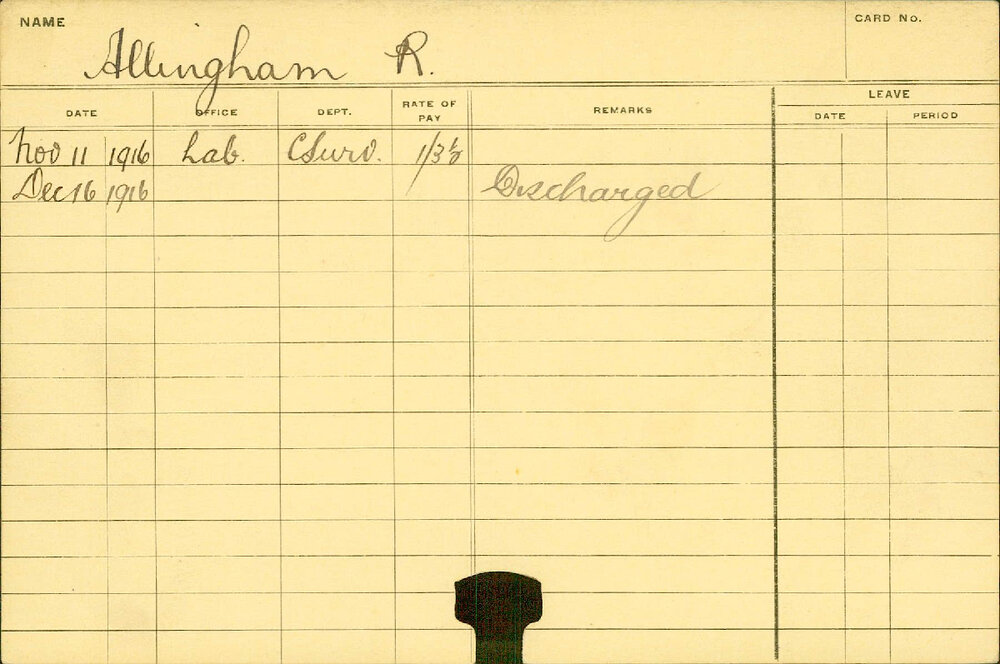 NAME
CARD No.
Allingham R.
DATE OFFICE DEPT. RATE OF PAY REMARKS LEAVE
DATE PERIOD
Nov 11 1916 Lab. CSurv. 1/3½
Dec 16 1916 Discharged